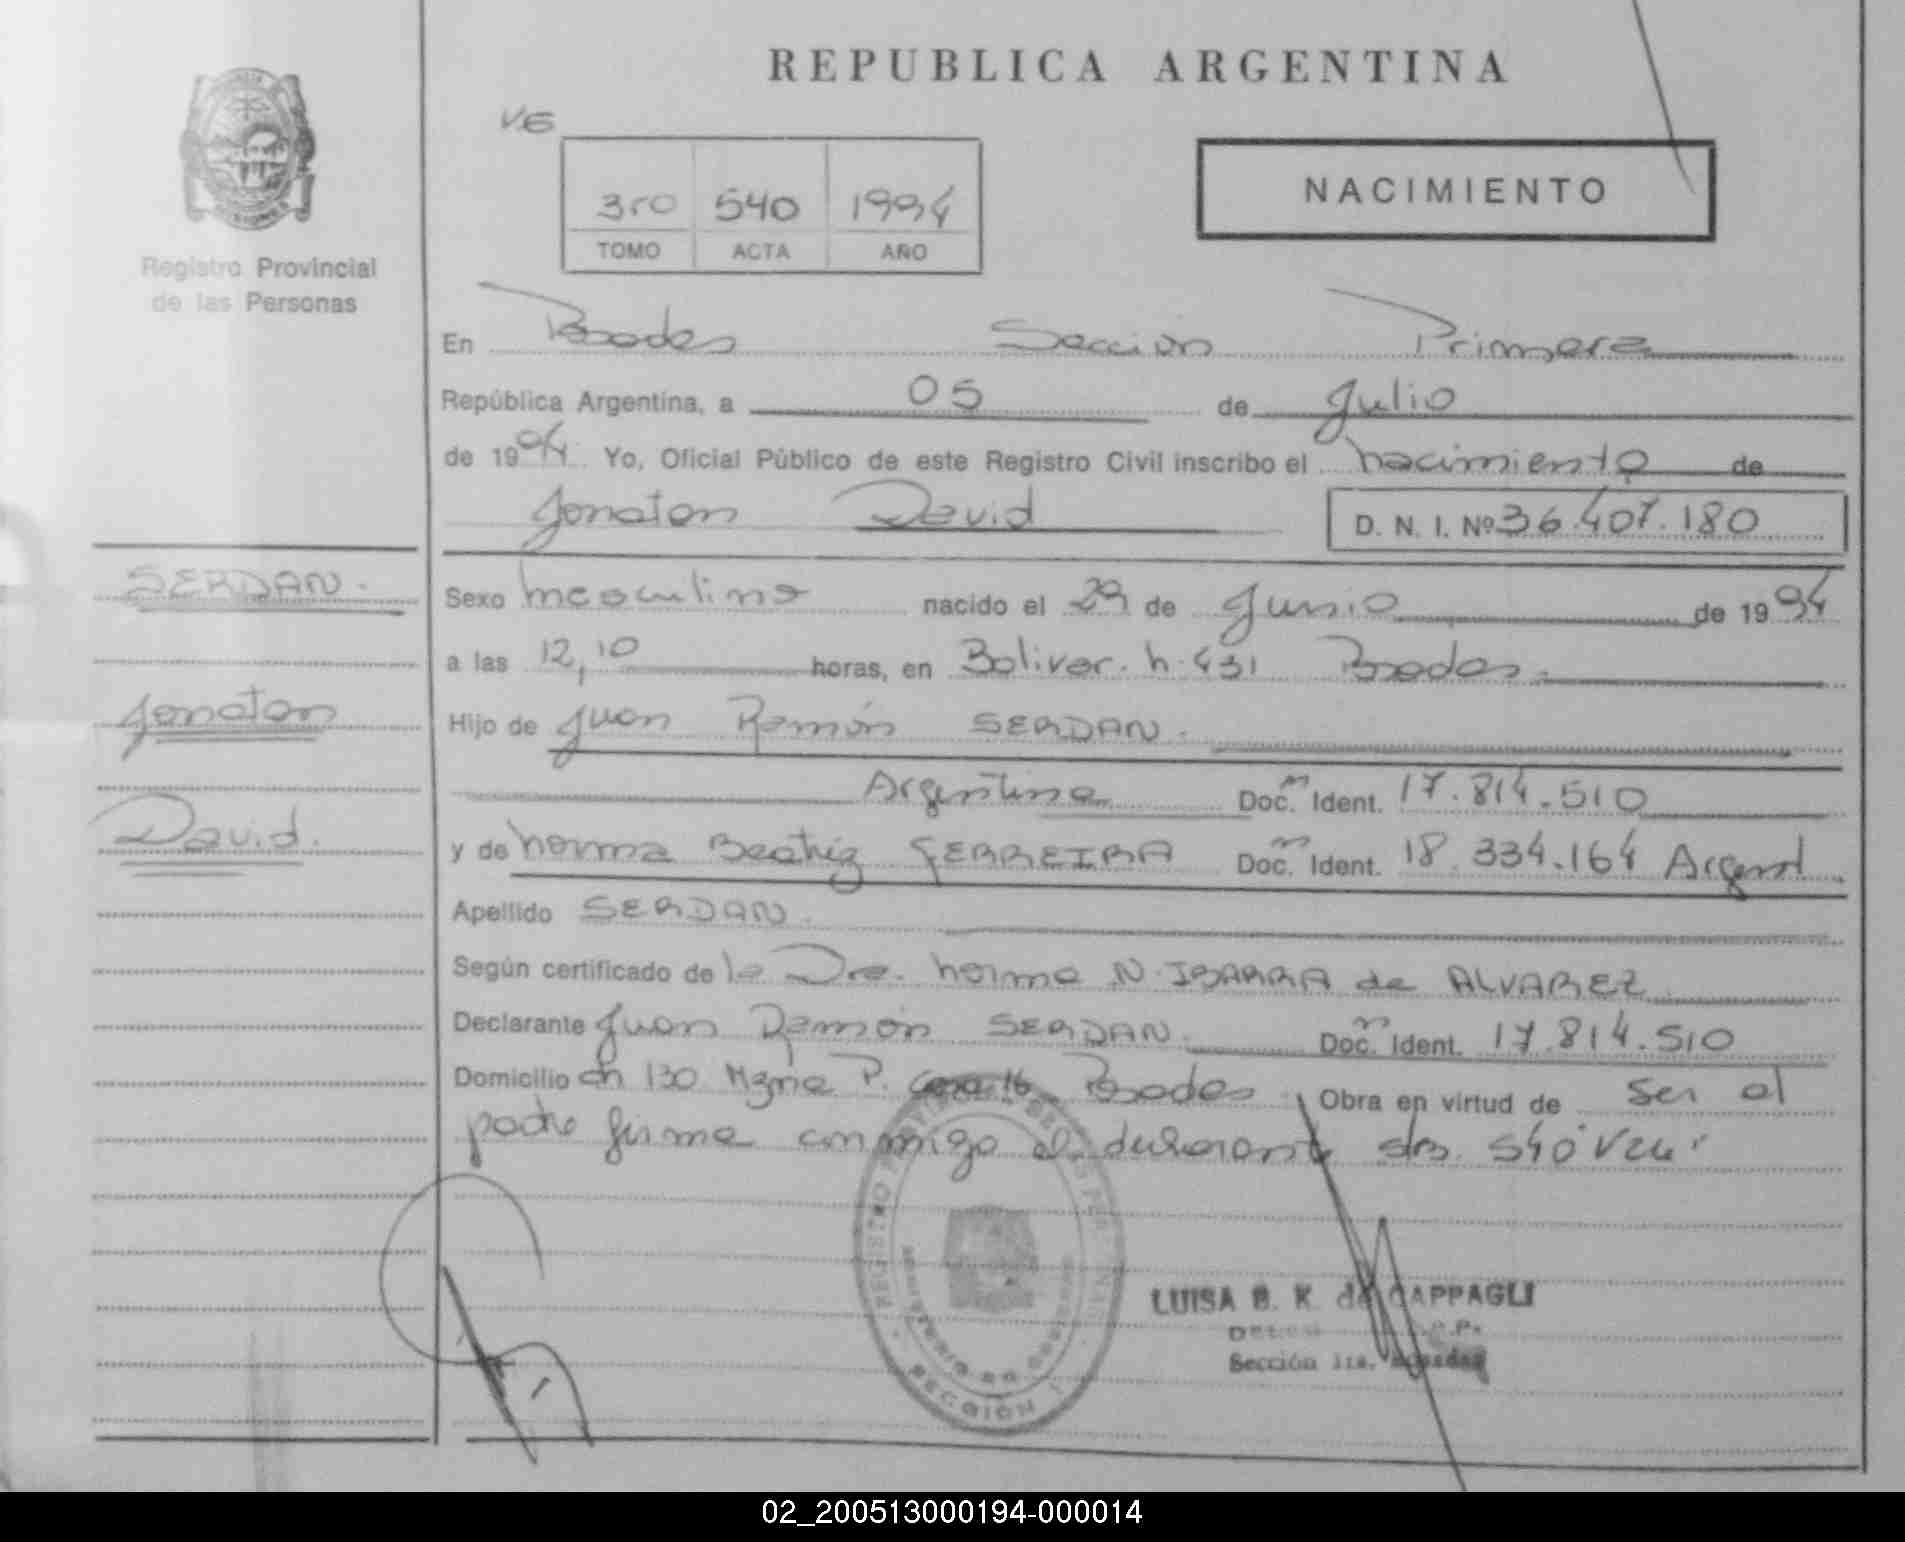 REPUBLICA ARGENTINA
VE
3ro 540 1994
TOMO ACTA AÑO
NACIMIENTO
Registro Provincial
de las Personas
En Posadas Sección Primera
República Argentina, a 05 de Julio
de 1994 Yo, Oficial Público de este Registro Civil inscribo el nacimiento de
Jonatan David D. N. I. Nº 36.407.180
SERDAN.
Jonatan
David.
Sexo masculino nacido el 29 de Junio de 1994
a las 12,10 horas, en Bolivar. n. 431 Posadas.
Hijo de Juan Ramón SERDAN.
Argentina Doc. Ident. 17.814.510
y de Norma Beatriz FERREIRA Doc. Ident. 18.334.164 Argent
Apellido SERDAN.
Según certificado de la Dra. Norma N. IBARRA de ALVAREZ
Declarante Juan Ramón SERDAN. Doc. Ident. 17.814.510
Domicilio ch 130 Mzna P. Casa 16 Posadas Obra en virtud de ser el
padre firma conmigo el declarante
REGISTRO PROVINCIAL DE LAS PERSONAS
MINISTERIO DE GOBIERNO
LUISA B. K. de CAPPAGLI
Sección 1ra. Posadas
02_200513000194-000014